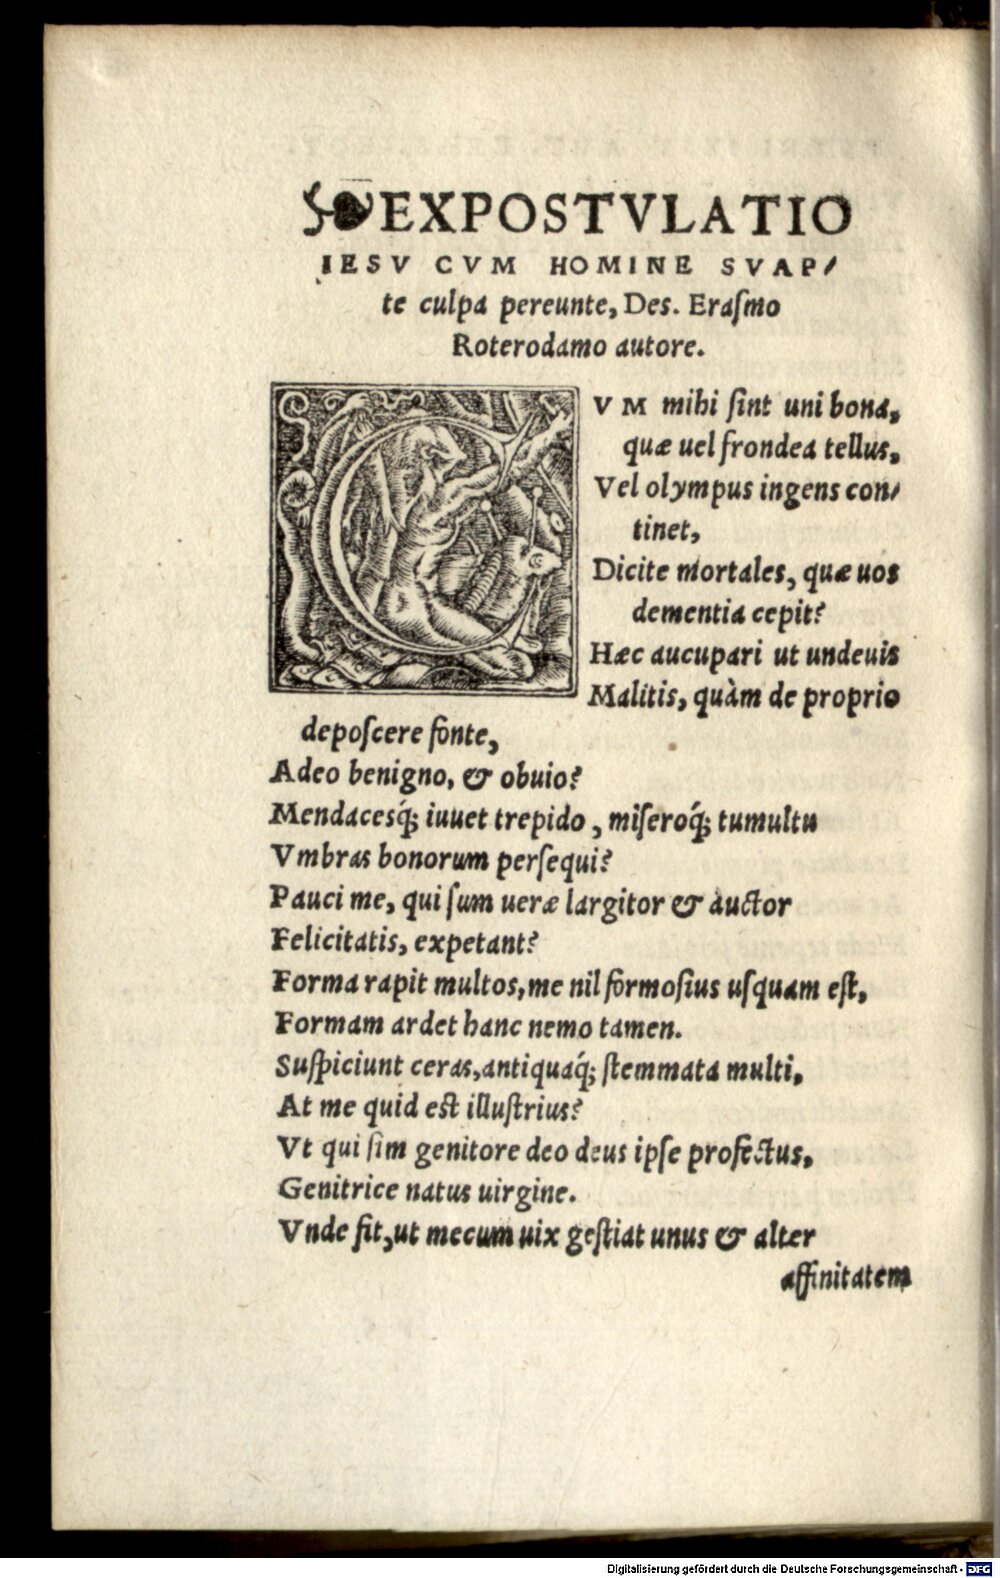 ❧EXPOSTVLATIO
IESV CVM HOMINE SVAP/
te culpa pereunte, Des. Eraſmo
Roterodamo autore.
CVM mihi ſint uni bona,
quæ uel frondea tellus,
Vel olympus ingens con/
tinet,
Dicite mortales, quæ uos
dementia cepit?
Hæc aucupari ut undeuis
Malitis, quàm de proprio
depoſcere fonte,
Adeo benigno, & obuio?
Mendacesq́; iuuet trepido, miſeroq́; tumultu
Vmbras bonorum perſequi?
Pauci me, qui ſum ueræ largitor & auctor
Felicitatis, expetant?
Forma rapit multos, me nil formoſius uſquam eſt,
Formam ardet hanc nemo tamen.
Suſpiciunt ceras, antiquaq́; ſtemmata multi,
At me quid est illuſtrius?
Vt qui ſim genitore deo deus ipſe profectus,
Genitrice natus uirgine.
Vnde fit, ut mecum uix geſtiat unus & alter
affinitatem
Digitalisierung gefördert durch die Deutsche Forschungsgemeinschaft - DFG